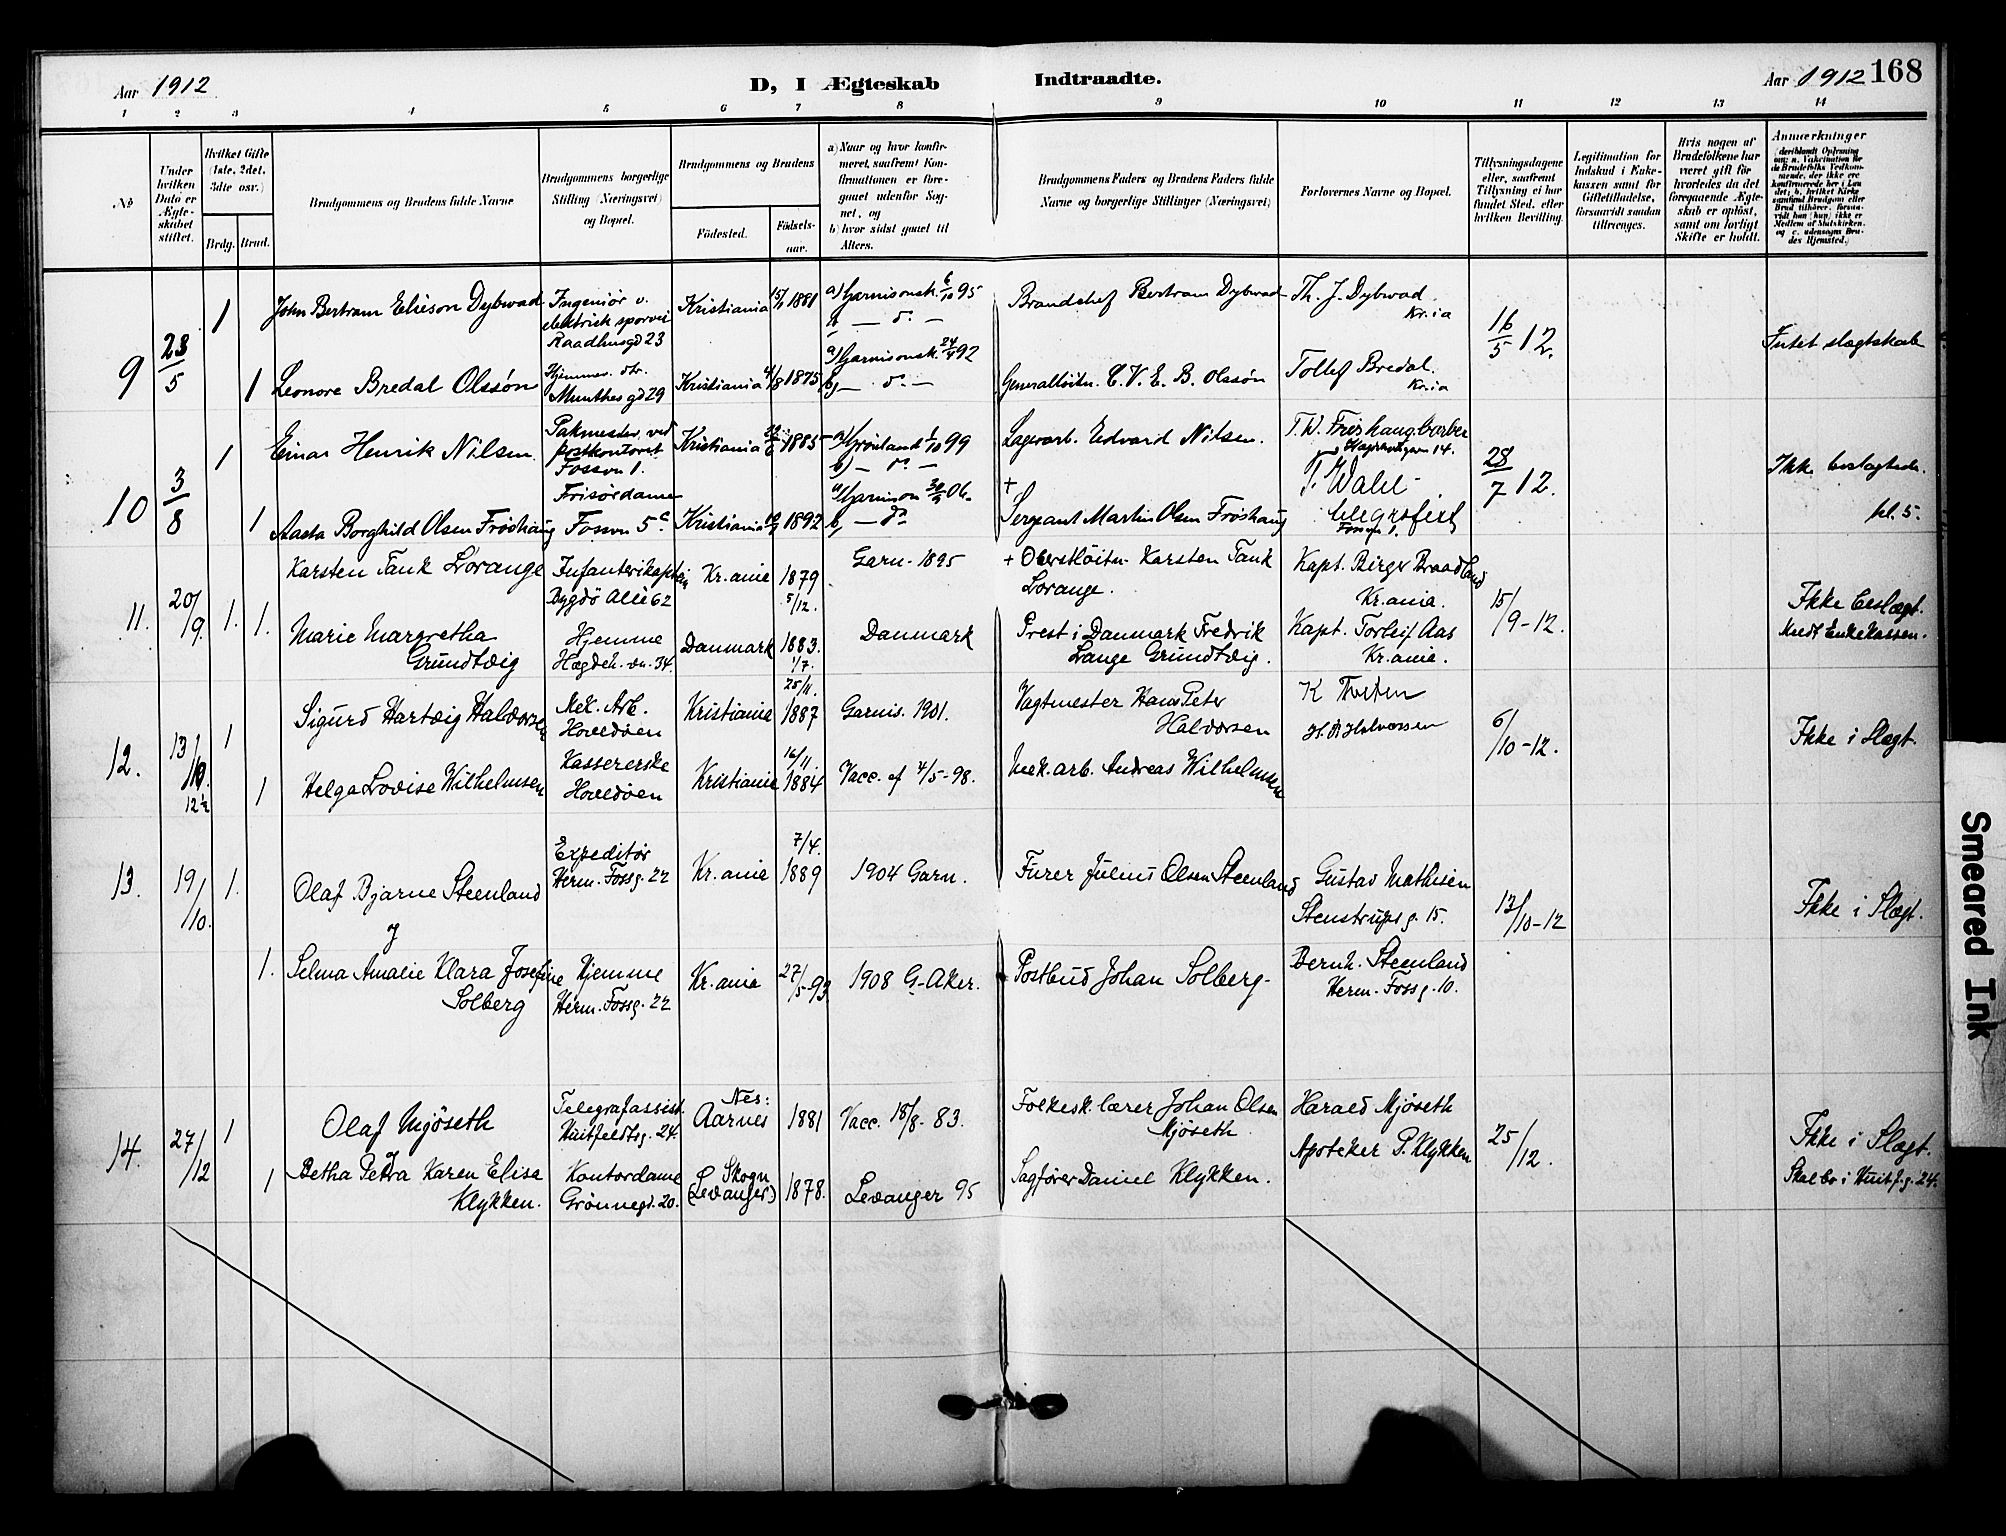 Aar 1912
D, I Ægteskab Indtraadte.
Aar 1912 168
1 2 3 4 5 6 7 8 9 10 11 12 13 14
No
Under hvilken Dato er Ægteskabet stiftet.
Hvilket Gifte (1ste, 2det, 3dte osv.)
Brdg. Brud.
Brudgommens og Brudens fulde Navne
Brudgommens borgerlige Stilling (Næringsvei) og Bopæl.
Brudgommens og Brudens
Fødested. Fødselsaar.
a) Naar og hvor konfirmeret, saafremt Konfirmationen er foregaaet udenfor Sognet, og
b) hvor sidst gaaet til Alters.
Brudgommens Faders og Brudens Faders fulde Navne og borgerlige Stillinger (Næringsvei)
Forlovernes Navne og Bopæl.
Tillysningsdagene eller, saafremt Tillysning ei har fundet Sted, efter hvilken Bevilling.
Legitimation for Indskud i Enkekassen samt for Giftetilladelse, forsaavidt saadan tiltrænges.
Hvis nogen af Brudefolkene har været gift før hvorledes da det foregaaende Ægteskab er opløst, samt om lovligt Skifte er holdt.
Anmærkninger (deriblandt Oplysning om: a. Vakcination for de Brudefolks Vedkommende, der ikke ere konfirmerede her i Landet; b. hvilket Kirkesamfund Brudgom eller Brud tilhører, forsaavidt han (hun) ikke er Medlem af Statskirken, og c. udensogns Brudes Hjemsted.)
9 23/5
1 John Bertram Elieson Dybwad Ingeniør v. elektrisk sporvei Raadhusgd 23 Kristiania 15/1 1881 a) Garnisonsk. 6/10 95 b) — d° — Brandchef Bertram Dybwad Th. J. Dybwad. Kr.ia 16/5 12. Intet slægtskab
1 Leonore Bredal Olssøn Hjemmev. dtr. Munthes gd 29 Kristiania 4/8 1875 a) Garnisonsk. 24/4 92 b) — d° — Generalløitn. C. V. E. B. Olssøn Tollef Bredal. Kr.ia
10 3/8
1 Einar Henrik Nilsen Pakmester ved postkontoret Fossvn 1. Kristiania 1885 a) Grønland 1/10 99 b) — d° — Lagerarb. Edvard Nilsen. T. W. Frøshaug, barber 14. 28/7 12. Ikke beslægtede.
kl. 5.
1 Aasta Borghild Olsen Frøshaug Frisørdame Fossvn 5 c Kristiania 1892 a) Garnison 30/9 06. b) — d° + Sergeant Martin Olsen Frøshaug T. Wahl - telegrafist Fossvn 1.
11. 20/9.
1. Karsten Tank Lorange Infanterikaptein Bygdö Allé 62 Kr.ania 1879 5/12. Garn. 1895 + Oberstløitn. Karsten Tank Lorange. Kapt. Birger Braadland Kr.ania. 15/9-12. Ikke beslægt.
Medl Enkekassen.
1. Marie Margretha Grundtvig Hjemme Hægdeh. vn. 34. Danmark 1883. 1/7. Danmark Prest i Danmark Fredrik Lange Grundtvig. Kapt. Torleif Aas Kr.ania.
12. 13/10 12½
1 Sigurd Hartvig Halvorsen Mek. Arb. Hovedøen Kristiania 25/11. 1887 Garnis. 1901. Vagtmester Hans Peter Halvorsen K Thoten H. P. Halvorsen 6/10-12. Ikke i Slægt.
1 Helga Lovise Wilhelmsen Kassererske Hovedøen Kristiania 16/11. 1884 Vacc. af 4/5-98. Mek. arb. Andreas Wilhelmsen
13. 19/10.
1. Olaf Bjarne Steenland Expeditør Herm. Fossg. 22 Kr.ania 7/4. 1889 1904 Garn. Furer Julius Olsen Steenland Gustav Mathisen Stenstrups g. 15. 13/10-12 Ikke i Slægt.
og
1. Selma Amalie Klara Josefine Solberg Hjemme Herm. Fossg. 22 Kr.ania 27/5-93 1908 G-Aker. Postbud Johan Solberg- Bernh. Steenland Herm. Fossg. 10.
14. 27/12
1 Olaf Mjöseth Telegrafassist. Huitfeldtsg. 24. Nes: Aarnes 1881 Vacc. 18/8-83. Folkesk. lærer Johan Olsen Mjöseth Harald Mjöseth 25/12. Ikke i Slægt.
Skal bo i Huitf. g. 24.
1 Betha Petra Karen Elisa Klykken. Kontordame Grönnegd. 20. Skogn (Levanger) 1878. Levanger 95 Sagfører Daniel Klykken. Apoteker P. Klykken
Smeared Ink